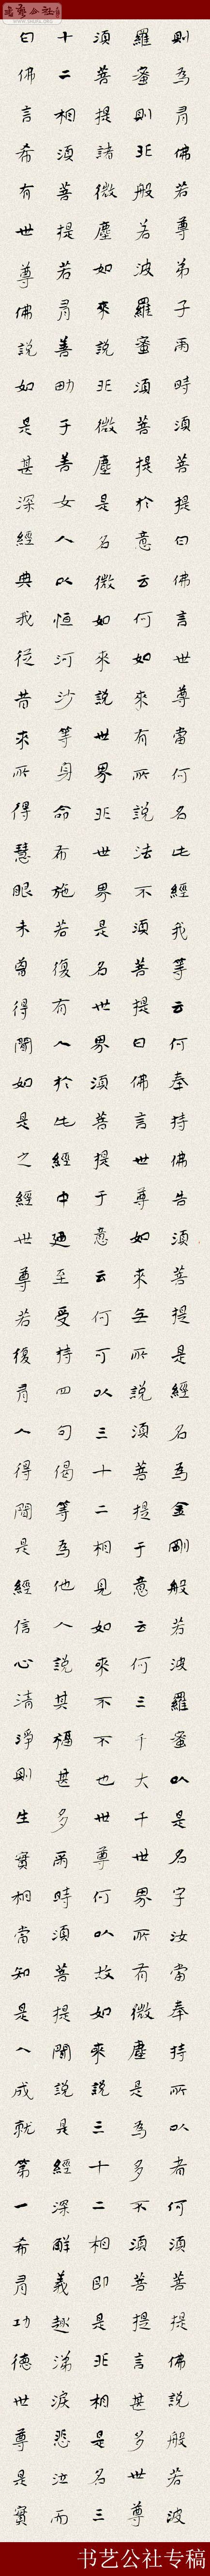 則為有佛若尊弟子爾時須菩提白佛言世尊當何名此經我等云何奉持佛告須菩提是經名為金剛般若波羅蜜以是名字汝當奉持所以者何須菩提佛說般若波
羅蜜則非般若波羅蜜須菩提於意云何如來有所說法不須菩提白佛言世尊如來无所說須菩提于意云何三千大千世界所有微塵是為多不須菩提言甚多世尊
須菩提諸微塵如來說非微塵是名微如來說世界非世界是名世界須菩提于意云何可以三十二相見如來不不也世尊何以故如來說三十二相即是非相是名三
十二相須菩提若有善男子善女人以恒河沙等身命布施若復有人於此經中廼至受持四句偈等為他人說其福甚多爾時須菩提聞說是經深解義趣涕淚悲泣而
白佛言希有世尊佛說如是甚深經典我從昔來所得慧眼未曾得聞如是之經世尊若復有人得聞是經信心清淨則生實相當知是人成就第一希有功德世尊是實
书艺公社专稿